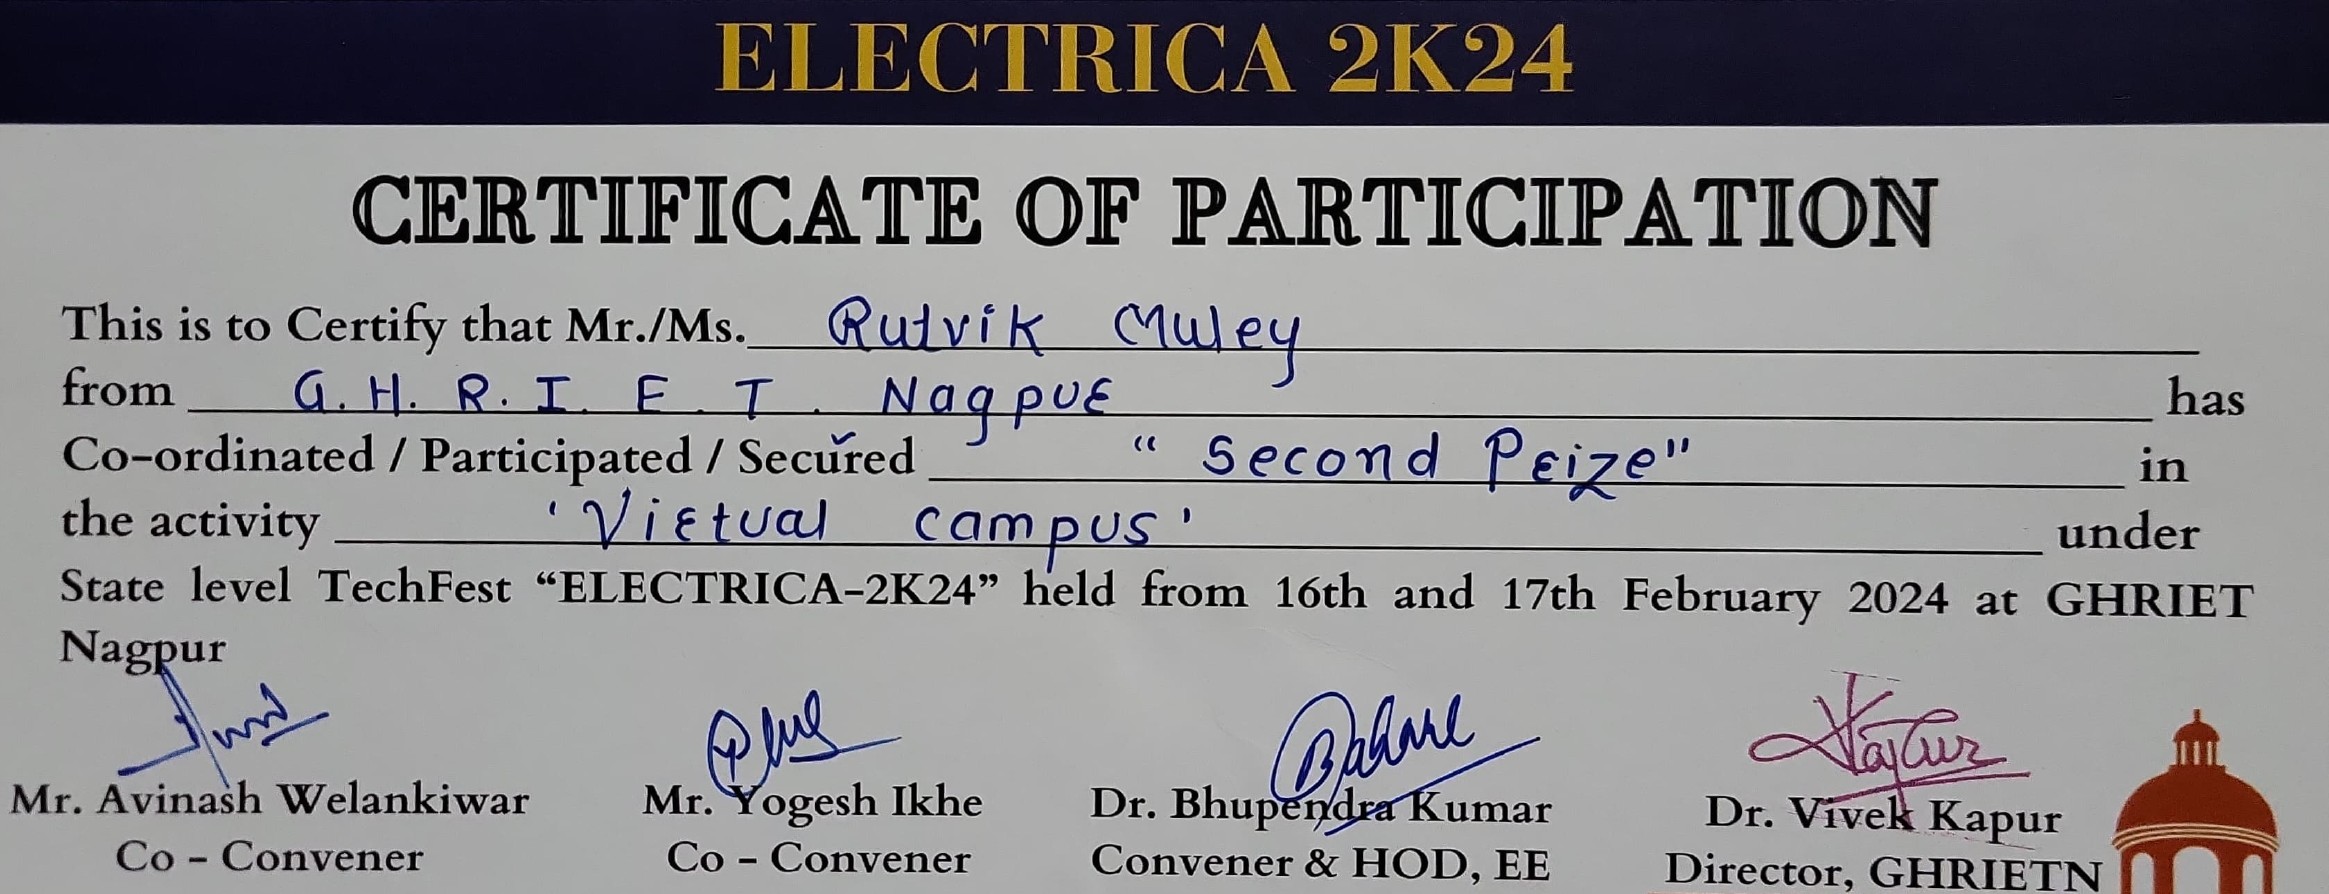 ELECTRICA 2K24
CERTIFICATE OF PARTICIPATION
This is to Certify that Mr./Ms. Rutvik Muley
from G. H. R. I. E. T. Nagpur has
Co-ordinated / Participated / Secured "Second Prize" in
the activity 'Virtual campus' under
State level TechFest “ELECTRICA-2K24” held from 16th and 17th February 2024 at GHRIET
Nagpur
Mr. Avinash Welankiwar Mr. Yogesh Ikhe Dr. Bhupendra Kumar Dr. Vivek Kapur
Co - Convener Co - Convener Convener & HOD, EE Director, GHRIETN